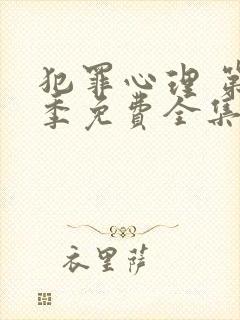 犯罪心理 第
季免费全集
衣里萨